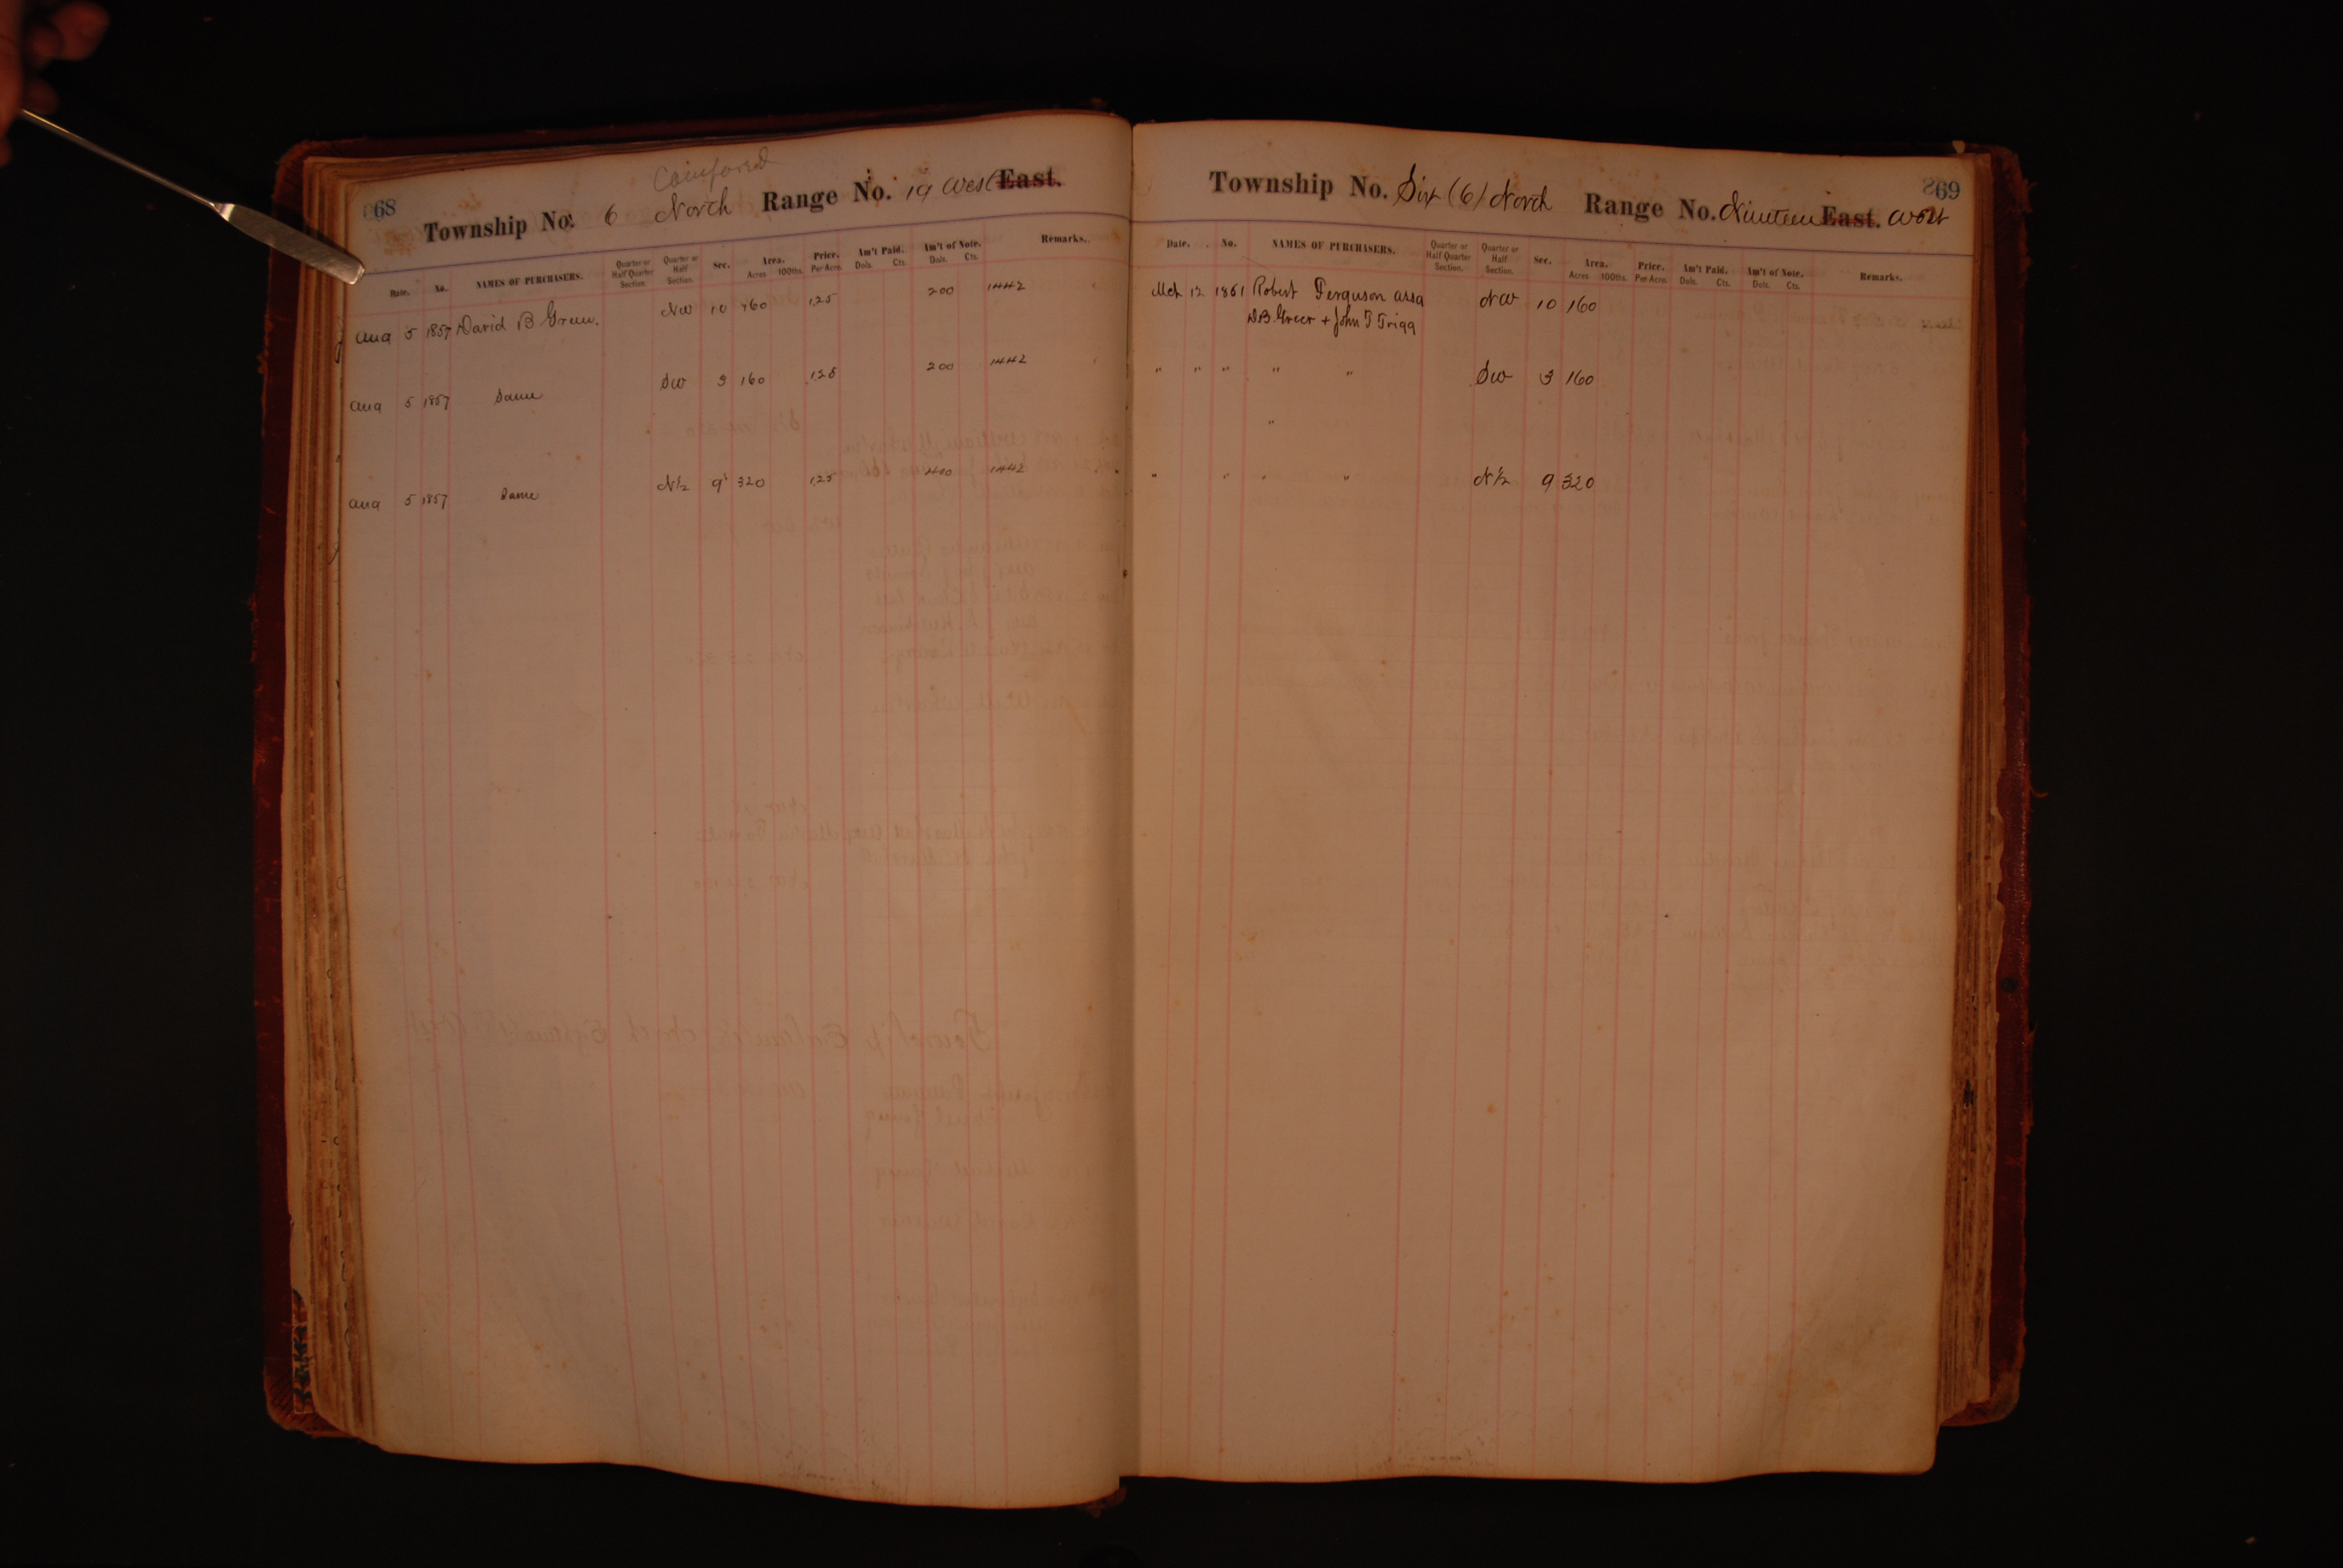 Compared
68
Township No. 6 North Range No. 19 West East.
Date. No. NAMES OF PURCHASERS. Quarter or Half Quarter Section. Quarter or Half Section. Sec. Area. Acres 100ths. Price. Per Acre. Am't Paid. Dols. Cts. Am't of Note. Dols. Cts. Remarks.
Aug 5 1857 David B Greer. NW 10 160 1.25 200 1442
Aug 5 1857 Same SW 3 160 1.25 200 1442
Aug 5 1857 Same N½ 9 320 1.25 400 1442
869
Township No. Six (6) North Range No. Nineteen East. West
Date. No. NAMES OF PURCHASERS. Quarter or Half Quarter Section. Quarter or Half Section. Sec. Area. Acres 100ths. Price. Per Acre. Am't Paid. Dols. Cts. Am't of Note. Dols. Cts. Remarks.
Mch 12 1861 Robert Ferguson assa NW 10 160
D.B. Greer + John T Trigg
" " " " " SW 3 160
"
" " " " N½ 9 320